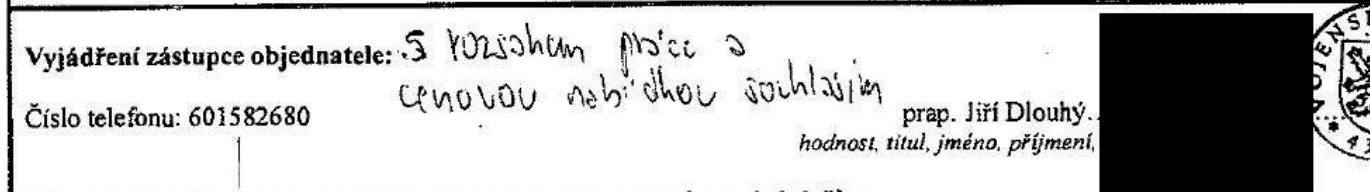 Vyjádření zástupce objednatele: S rozsahem práce a
cenovou nabídkou souhlasím
Číslo telefonu: 601582680
prap. Jiří Dlouhý.
hodnost, titul, jméno, příjmení,